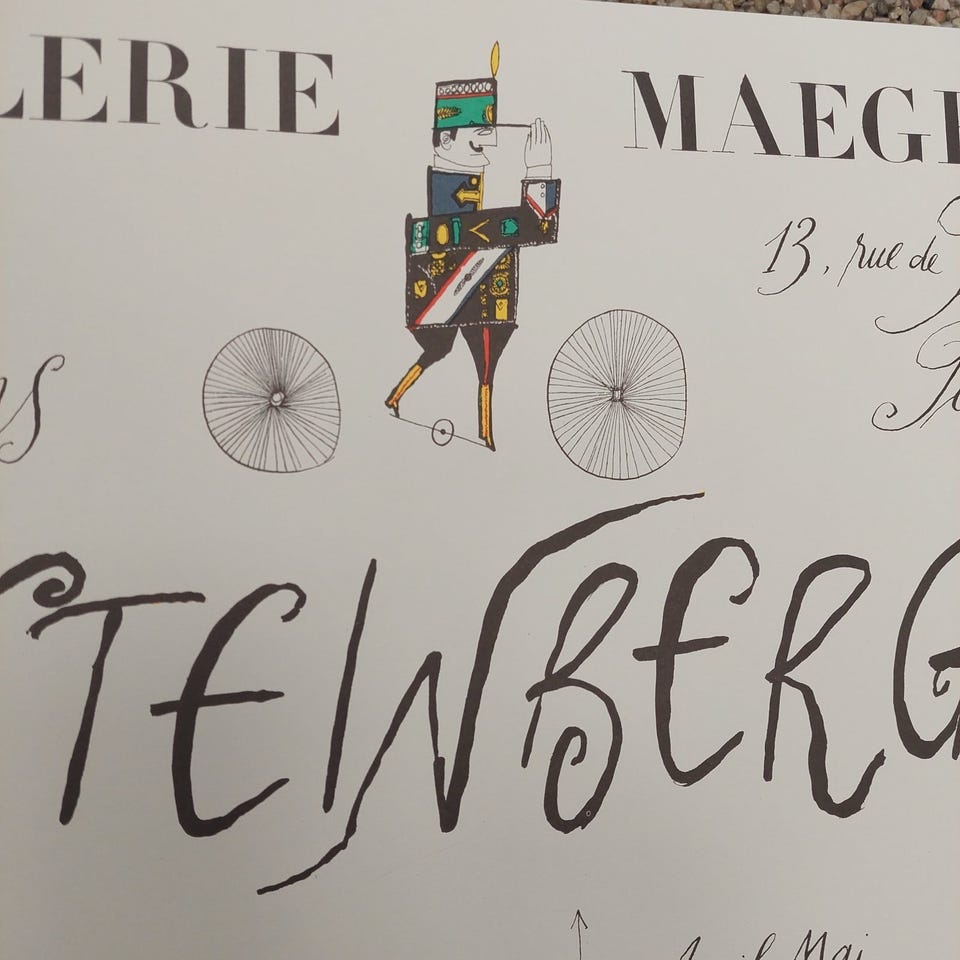 LERIE MAEG
13, rue de
STEINBERG
Avril Mai